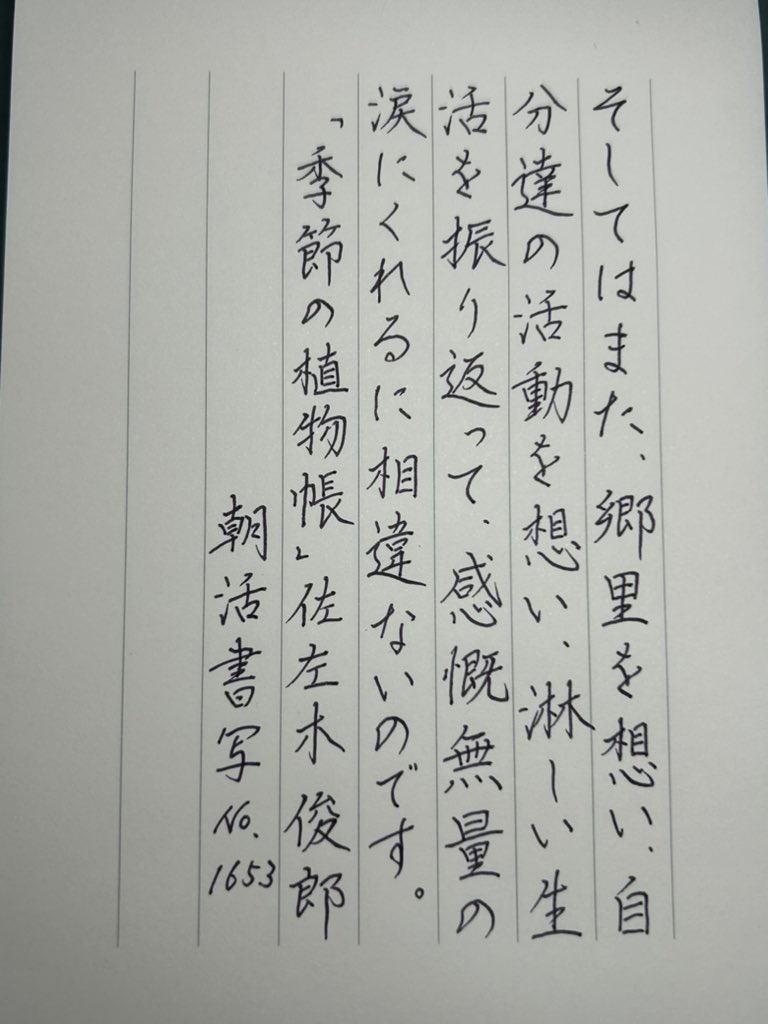 そしてはまた、郷里を想い、自
分達の活動を想い、淋しい生
活を振り返って、感慨無量の
涙にくれるに相違ないのです。
「季節の植物帳」佐左木俊郎
朝活書写No.1653